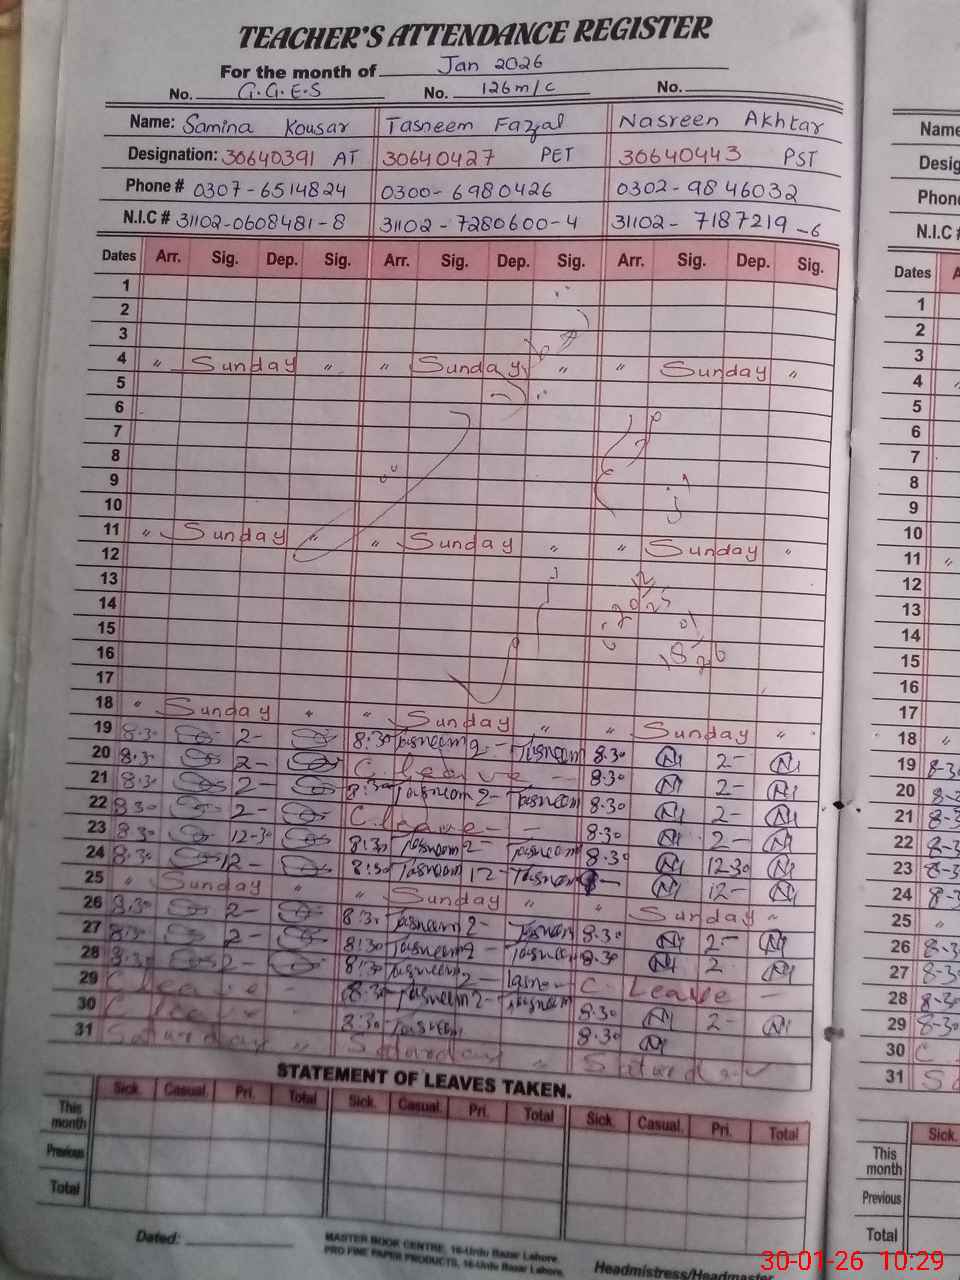 TEACHER'S ATTENDANCE REGISTER
For the month of Jan 2026
No. G.G.E.S No. 126 m/c No.
Name: Samina Kousar Tasneem Fazal Nasreen Akhtar
Designation: 30640391 AT 30640427 PET 30640443 PST
Phone # 0307-6514824 0300-6980426 0302-9846032
N.I.C # 31102-0608481-8 31102-7280600-4 31102-7187219-6
Dates Arr. Sig. Dep. Sig. Arr. Sig. Dep. Sig. Arr. Sig. Dep. Sig.
1
2
3
4 " Sunday " " Sunday " " Sunday "
5
6
7
8
9
10
11 " Sunday " " Sunday " " Sunday "
12
13
14
15
16
17
18 " Sunday " " Sunday " " Sunday "
19 8.30 2- 8:30 Tasneem 2- Tasneem 8.30 2-
20 8.30 2- C. leave - 8.30 2-
21 8.30 2- 8:30 Tasneem 2- Tasneem 8.30 2-
22 8.30 2- C. leave - - 8.30 2-
23 8.30 12-30 8:30 Tasneem 2- Tasneem 8.30 12-30
24 8.30 12 8:30 Tasneem 12- Tasneem 12-
25 " Sunday " " Sunday " " Sunday "
26 8.30 2- 8:30 Tasneem 2- Tasneem 8.30 2-
27 8.30 2- 8:30 Tasneem 2- Tasneem 8.30 2
28 8.30 2- 8:30 Tasneem 2- C. Leave -
29 C leave - 8:30 Tasneem 2- Tasneem 8.30 2-
30 C leave - 8:30 Tasneem 8.30
31 Saturday " Saturday " Saturday
STATEMENT OF LEAVES TAKEN.
Sick. Casual. Pri. Total Sick. Casual. Pri. Total Sick. Casual. Pri. Total
This month
Previous
Total
Dated:
MASTER BOOK CENTRE, 16-Urdu Bazar Lahore.
PRO FINE PAPER PRODUCTS, 16-Urdu Bazar Lahore.
Headmistress/Headmaster
Name
Phone
N.I.C #
Dates
1
2
3
4 "
5
6
7
8
9
10
11 "
12
13
14
15
16
17
18 "
19 8-30
20
21
22
23
24
25 "
26 8-30
27 8-30
28 8-30
29 8-30
30 C
31
Sick.
This month
Previous
Total
30-01-26 10:29